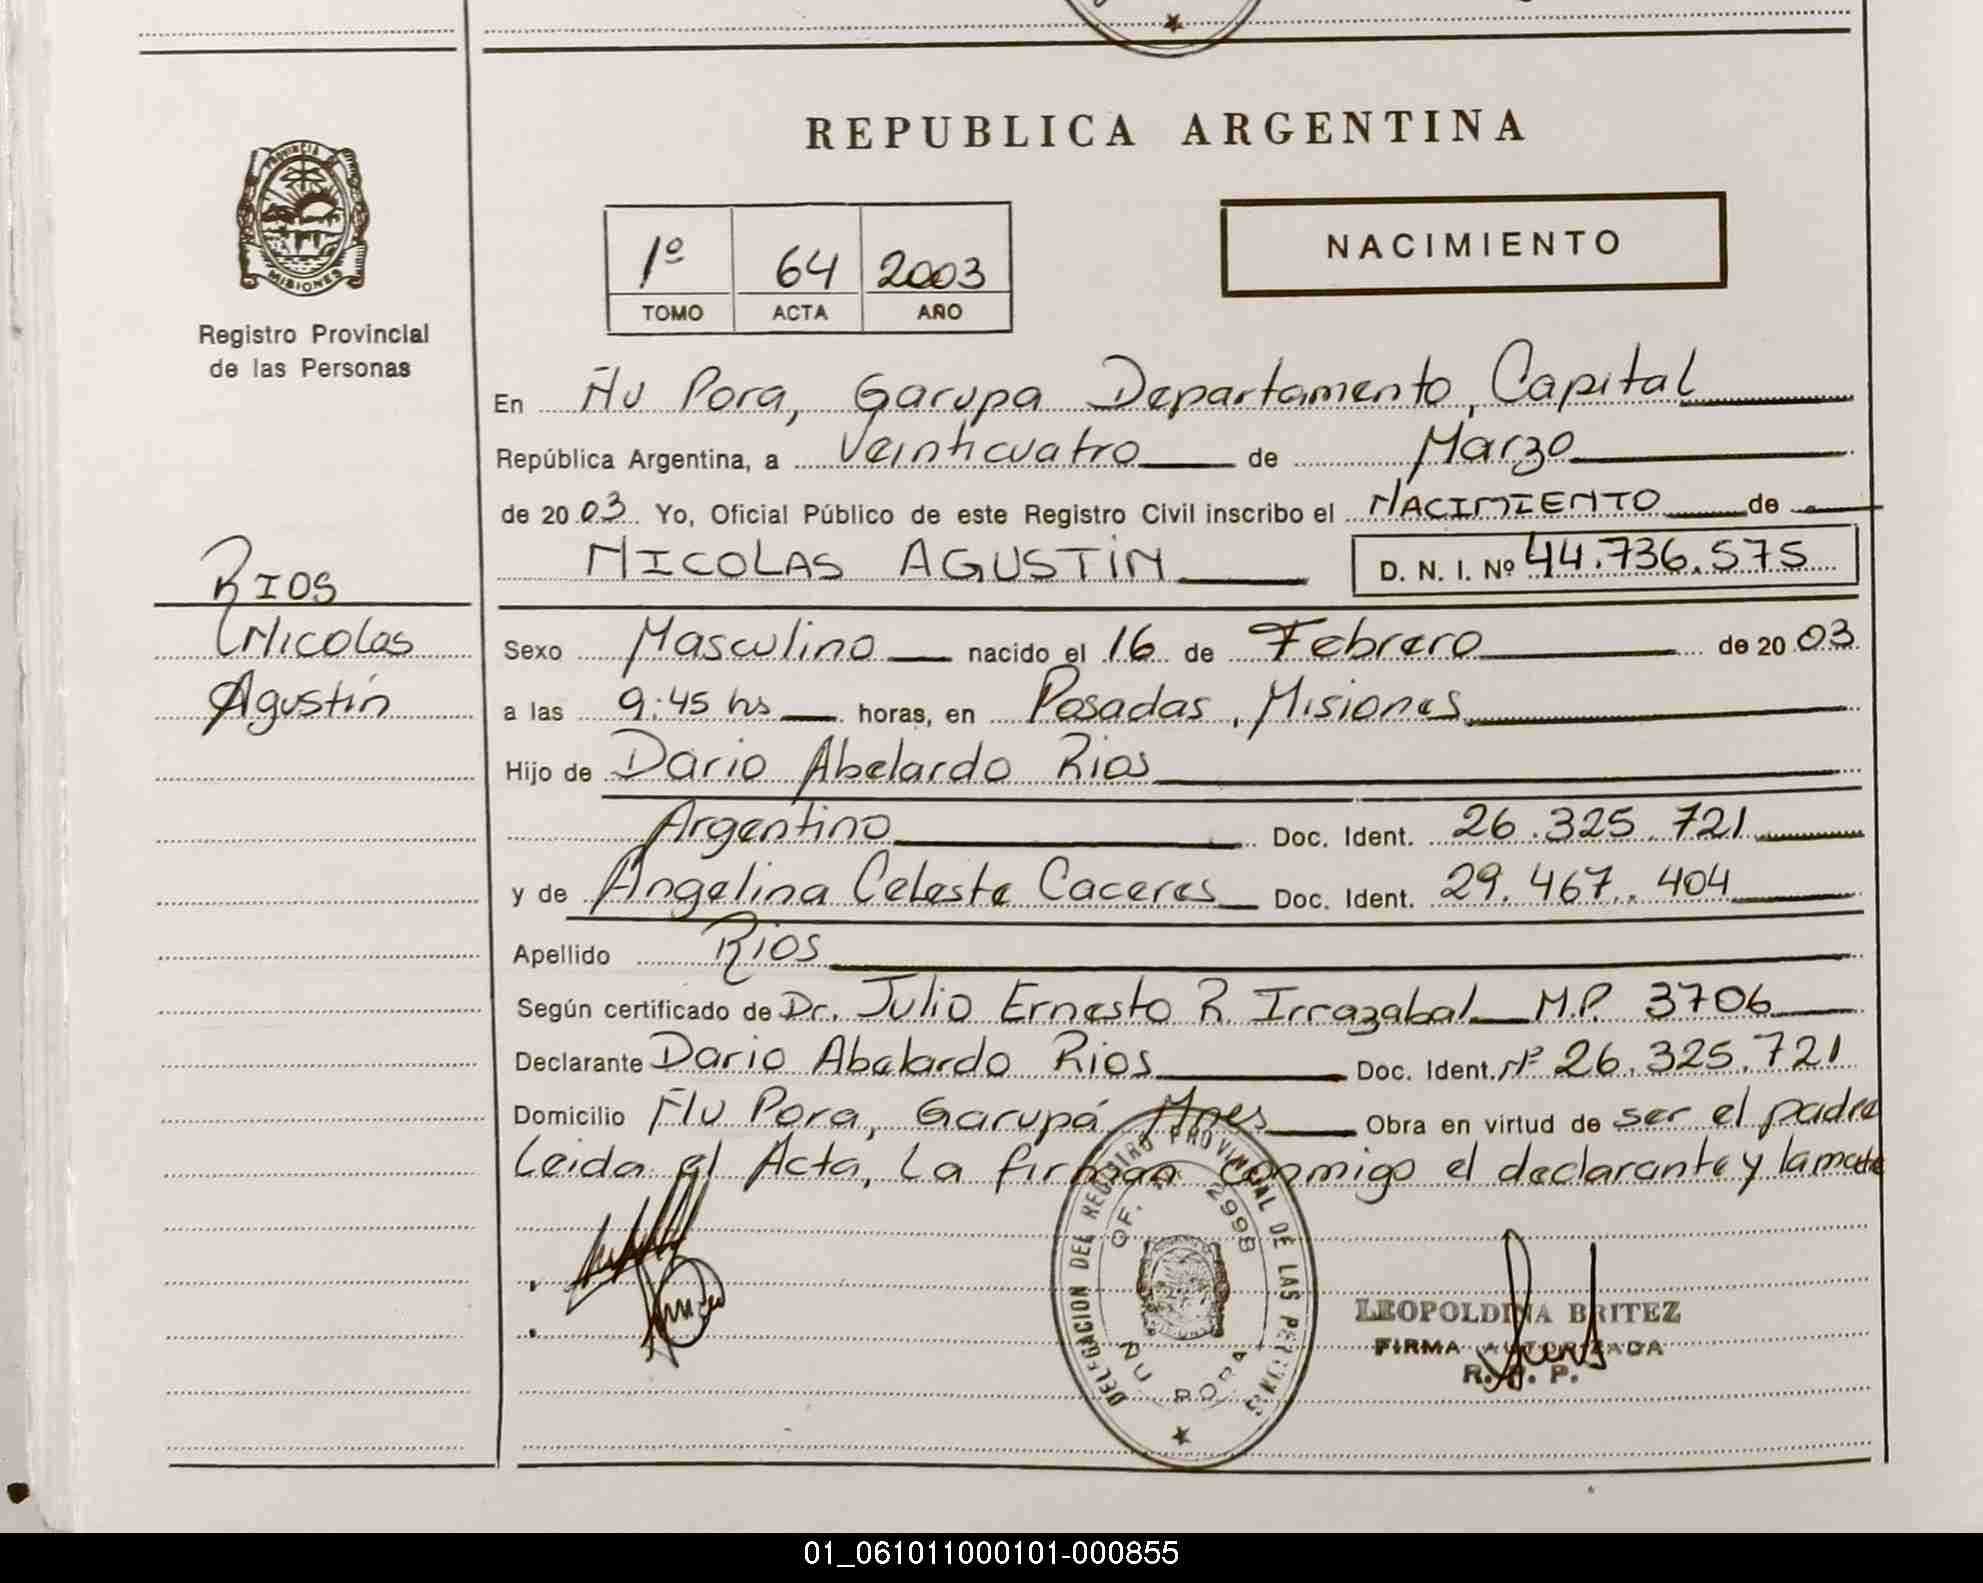 REPUBLICA ARGENTINA
PROVINCIA DE
MISIONES
Registro Provincial
de las Personas
1º 64 2003
TOMO ACTA AÑO
NACIMIENTO
En Ñu Pora, Garupa Departamento, Capital
República Argentina, a Veinticuatro de Marzo
de 2003 Yo, Oficial Público de este Registro Civil inscribo el NACIMIENTO de
NICOLAS AGUSTIN D. N. I. Nº 44.736.575
RIOS
Nicolas
Agustín
Sexo Masculino nacido el 16 de Febrero de 2003
a las 9:45 hs horas, en Posadas, Misiones
Hijo de Dario Abelardo Rios
Argentino Doc. Ident. 26.325.721
y de Angelina Celeste Caceres Doc. Ident. 29.467.404
Apellido Rios
Según certificado de Dr. Julio Ernesto R. Irrazabal M.P. 3706
Declarante Dario Abelardo Rios Doc. Ident. Nº 26.325.721
Domicilio Ñu Pora, Garupá Mnes Obra en virtud de ser el padre
Leida el Acta, La firman conmigo el declarante y la madre
DELEGACION DEL REGISTRO PROVINCIAL DE LAS PERSONAS
OF. 2998
ÑU PORA
LEOPOLDINA BRITEZ
FIRMA AUTORIZADA
R. P. P.
01_061011000101-000855